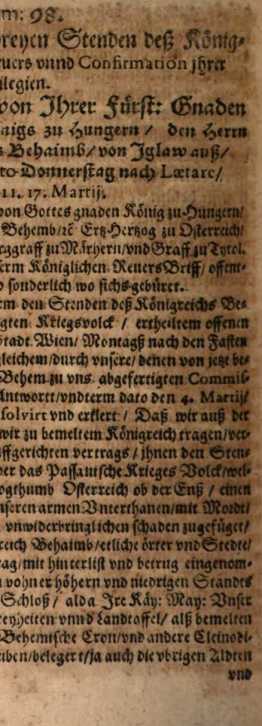 m: 98.
reyen Stenden deß König-
ruers vnnd Confirmation jhrer
ilegien.
von Ihrer Fürst: Gnaden
nigs zu Hungern / den Herrn
s Behaimb / von Iglaw auß /
to Donnerstag nach Lætare /
11. 17. Martij.
von Gottes gnaden König zu Hungern /
Behemb / ꝛc Ertz-Hertzog zu Osterreich /
rggraff zu Märhern / vnd Graff zu Tyrol.
erm Königlichen Reuers Briff / offent-
o sonderlich wo sichs gebüret.
rm den Stenden deß Königreichs Be-
gten Kriegsvolck / ertheiltem offenen
tadt Wien / Montags nach den Fasten
gleichem / durch vnsere / denen von jetzt be-
Behem zu vns abgefertigten Commis-
Antwortt / vndterm dato den 4. Martij /
solvirt vnd erklert / Daß wir auß der
wir zu bemeltem Königreich tragen / ver-
ffgerichten vertrags / ihnen den Sten-
ber das Passautsche Krieges Volck / wel-
ogthumb Osterreich ob der Enß / einen
nseren armen Vnterthanen / mit Mordt /
vnwiderbringlichen schaden zugefüget /
reich Behaimb / etliche örter vnd Stedte /
ag / mit hinterlist vnd betrug eingenom-
wohner höhern vnd niedrigen Standts
Schloß / alda Ire Käy: May: Vnser
eyheiten vnnd Landtaffel / alß bemelten
Behemische Cron / vnd andere Cleinodi-
ben / belegert / ja auch die vbrigen Aldten
vnd